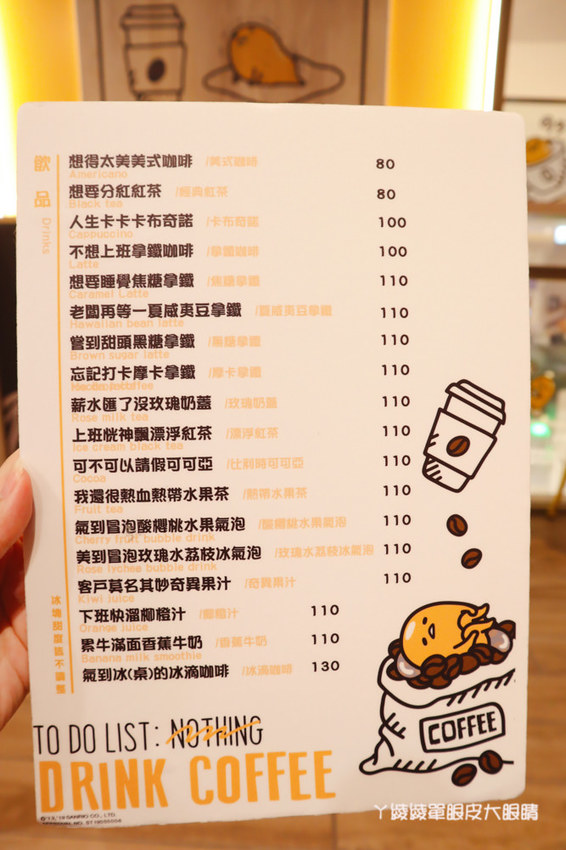 飲品 Drinks
想得太美美式咖啡 /美式咖啡 80
Americano
想要分紅紅茶 /經典紅茶 80
Black tea
人生卡卡卡布奇諾 /卡布奇諾 100
Cappuccino
不想上班拿鐵咖啡 /拿鐵咖啡 100
Latte
想要睡覺焦糖拿鐵 /焦糖拿鐵 110
Caramel Latte
老闆再等一夏威夷豆拿鐵 /夏威夷豆拿鐵 110
Hawaiian bean latte
嘗到甜頭黑糖拿鐵 /黑糖拿鐵 110
Brown sugar latte
忘記打卡摩卡拿鐵 /摩卡拿鐵 110
薪水匯了沒玫瑰奶蓋 /玫瑰奶蓋 110
Rose milk tea
上班恍神飄漂浮紅茶 /漂浮紅茶 110
Ice cream black tea
可不可以請假可可亞 /比利時可可亞 110
Cocoa
我還很熱血熱帶水果茶 /熱帶水果茶 110
Fruit tea
氣到冒泡酸櫻桃水果氣泡 /酸櫻桃水果氣泡 110
Cherry fruit bubble drink
美到冒泡玫瑰水荔枝冰氣泡 /玫瑰水荔枝冰氣泡 110
Rose lychee bubble drink
客戶莫名其妙奇異果汁 /奇異果汁 110
Kiwi juice
下班快溜柳橙汁 /柳橙汁 110
Orange juice
累牛滿面香蕉牛奶 /香蕉牛奶 110
Banana milk smoothie
氣到冰(桌)的冰滴咖啡 /冰滴咖啡 130
冰塊甜度皆不調整
TO DO LIST: NOTHING
DRINK COFFEE
COFFEE
ㄚ綾綾單眼皮大眼睛